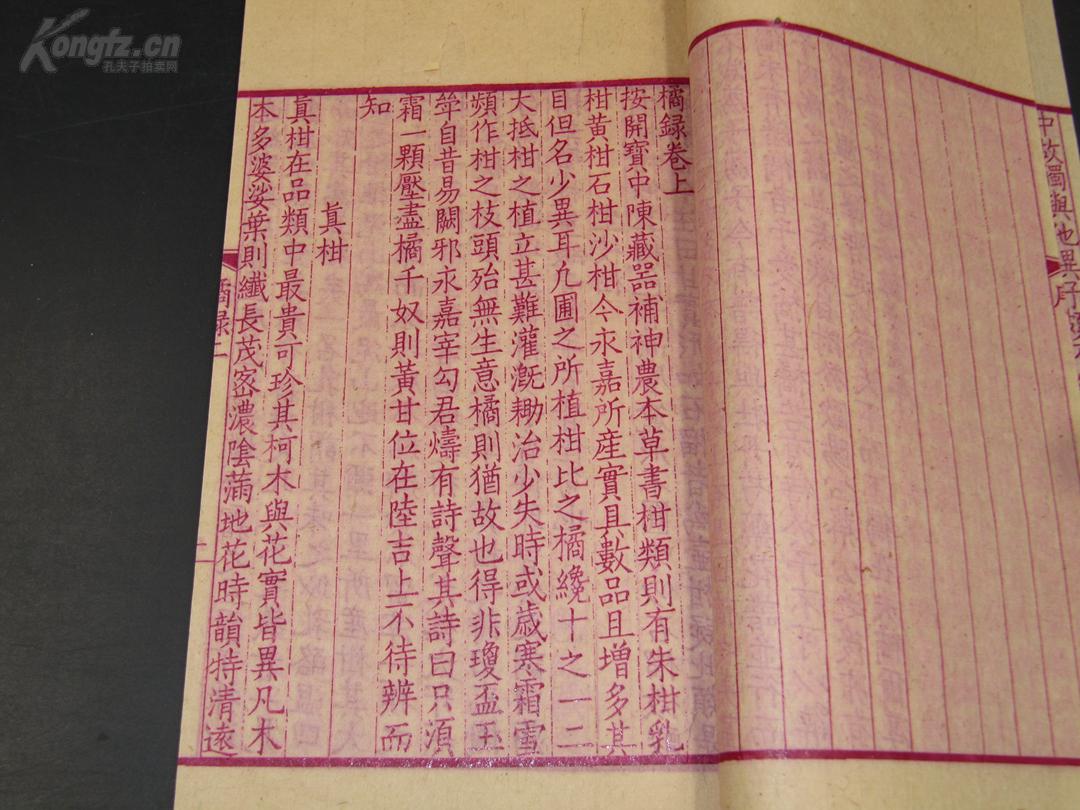 Kongfz.cn
孔夫子拍卖网
橘録卷上
按開寶中陳藏器補神農本草書柑類則有朱柑乳
柑黃柑石柑沙柑今永嘉所產實具數品且增多其
目但名少異耳凢圃之所植柑比之橘纔十之一二
大抵柑之植立甚難灌漑耡治少失時或歲寒霜雪
頻作柑之枝頭殆無生意橘則猶故也得非瓊盃玉
斝自昔易闕邪永嘉宰勾君燽有詩聲其詩曰只須
霜一顆壓盡橘千奴則黃甘位在陸吉上不待辨而
知
眞柑
眞柑在品類中最貴可珍其柯木與花實皆異凡木
木多婆娑葉則纖長茂宻濃陰滿地花時韻特清逺
橘録
二